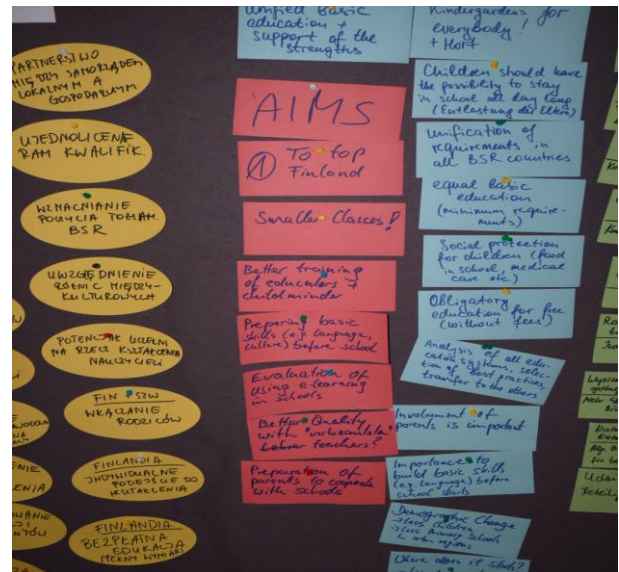 PARTNERSTWO
MIĘDZY SAMORZĄDEM
LOKALNYM A
GOSPODARCZYM
UJEDNOLICENIE
RAM KWALIFIK.
WZMACNIANIE
POCZUCIA TOŻSAM.
BSR
UWZGLĘDNIENIE
RÓŻNIC MIĘDZY-
KULTUROWYCH
POTENCJAŁ UCZELNI
NA RZECZ KSZTAŁCENIA
NAUCZYCIELI
FIN
WŁĄCZANIE
RODZICÓW
FINLANDIA
INDYWIDUALNE
PODEJŚCIE DO
KSZTAŁCENIA
FINLANDIA
BEZPŁATNA
EDUKACJA
Unified Basic
education +
support of the
strengths
AIMS
1 To top
Finland
Smaller Classes!
Better training
of educators +
childminder
Preparing basic
skills (e.g. language,
culture) before school
Evaluation of
using e-learning
in schools
Better Quality
with
teachers?
Preparation of
parents to cooperate
with schools
Kindergardens for
everybody!
+ Hort
Children should have
the possibility to stay
in school all day long
(Entlastung der Eltern)
Unification of
requirements in
all BSR countries
equal basic
education
(minimum require-
ments)
Social protection
for children (food
in school, medical
care etc.)
Obligatory
education for free
(without fees)
Analysis of all edu-
cation systems, selec-
tion of best practices,
transfer to the others
Involvment of
parents is important
Importance to
build basic skills
(e.g. language) before
school starts
Demographic Change
→ less children
→ less Primary Schools
in regions
Where does it start?